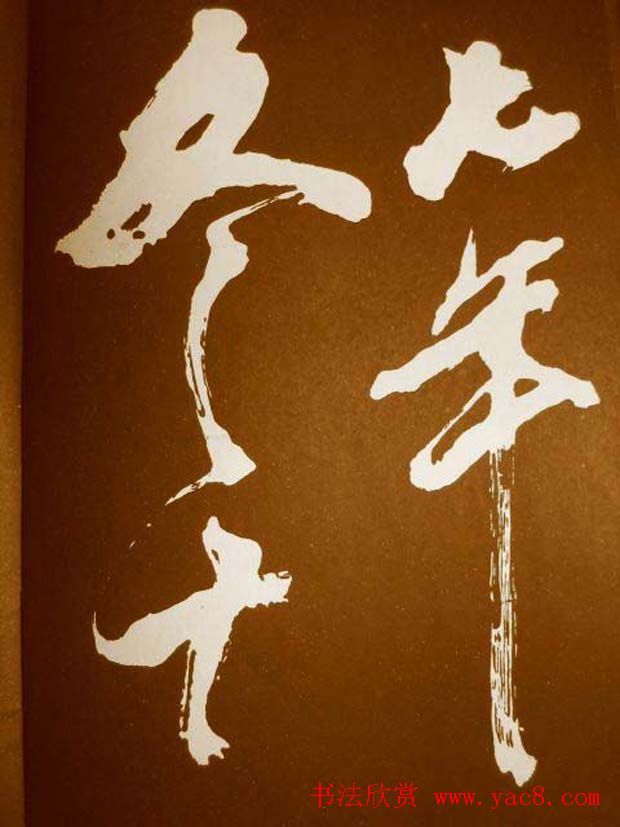 六年
冬十
书法欣赏 www.yac8.com